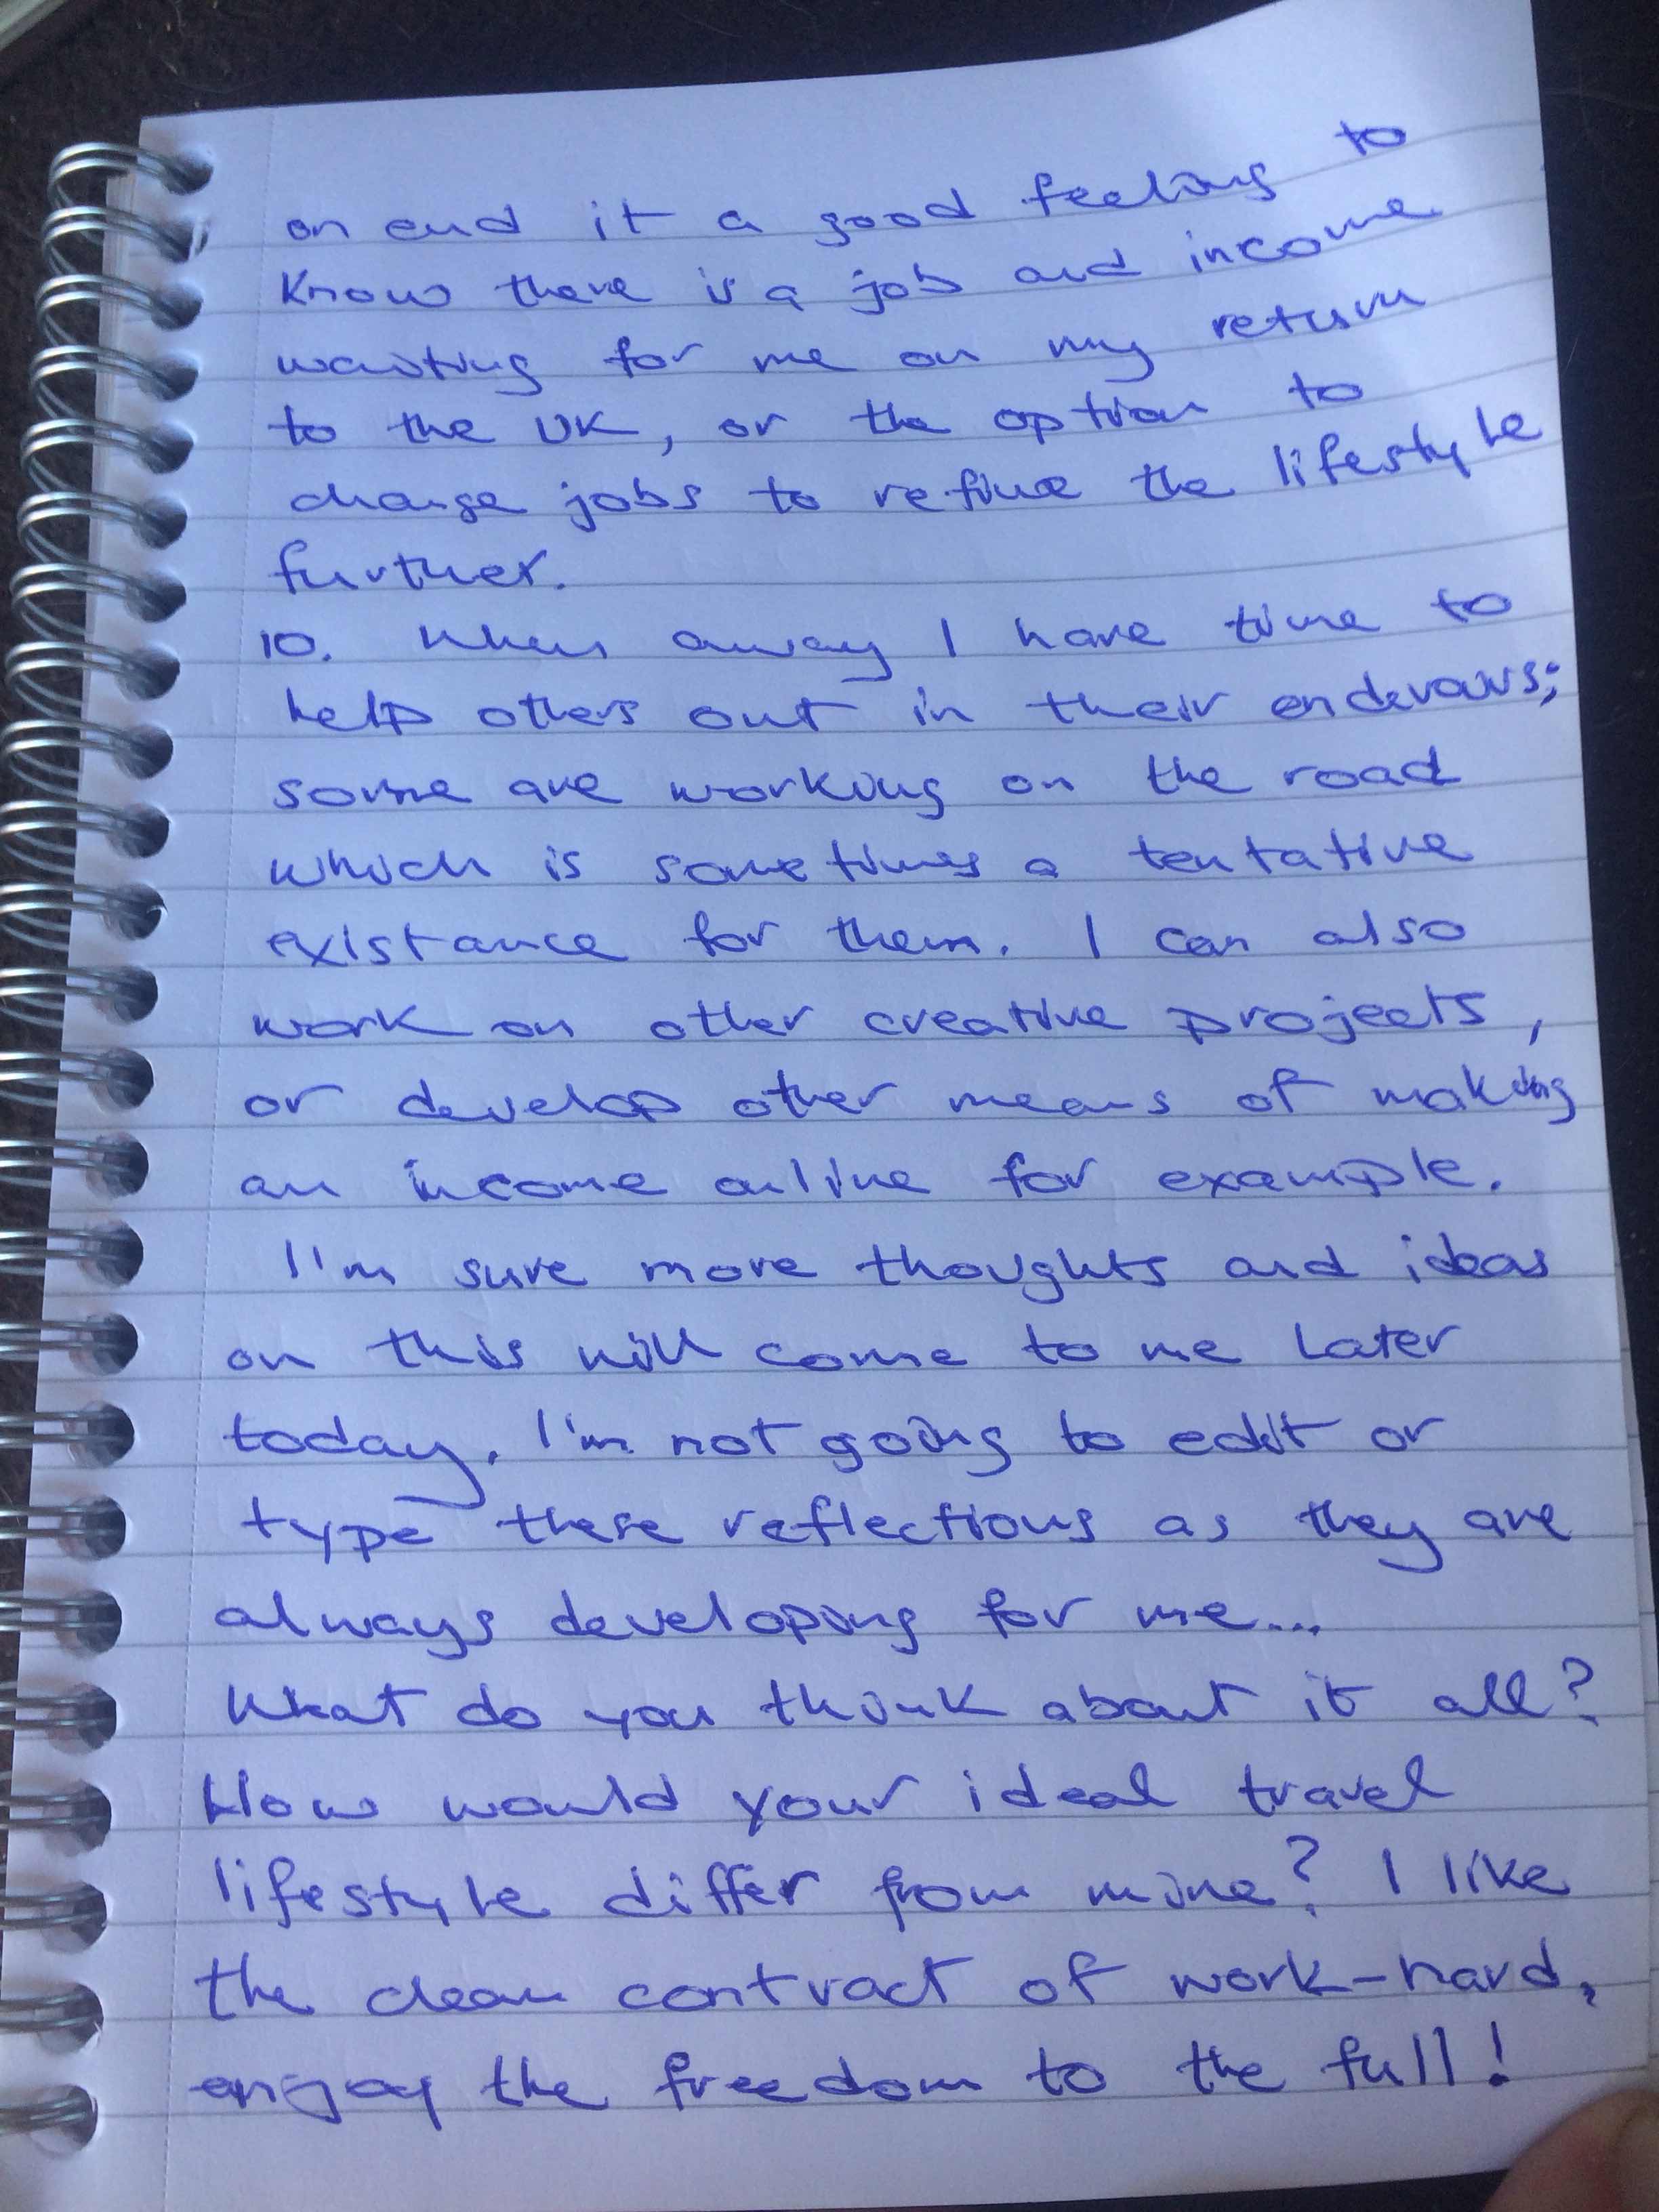 on end it a good feeling to
know there is a job and income
waiting for me on my return
to the UK, or the option to
change jobs to refine the lifestyle
further.
10. When away I have time to
help others out in their endevours;
some are working on the road
which is sometimes a tentative
existance for them. I can also
work on other creative projects,
or develop other means of making
an income online for example.
I'm sure more thoughts and ideas
on this will come to me later
today. I'm not going to edit or
type these reflections as they are
always developing for me...
What do you think about it all?
How would your ideal travel
lifestyle differ from mine? I like
the clean contract of work-hard,
enjoy the freedom to the full!